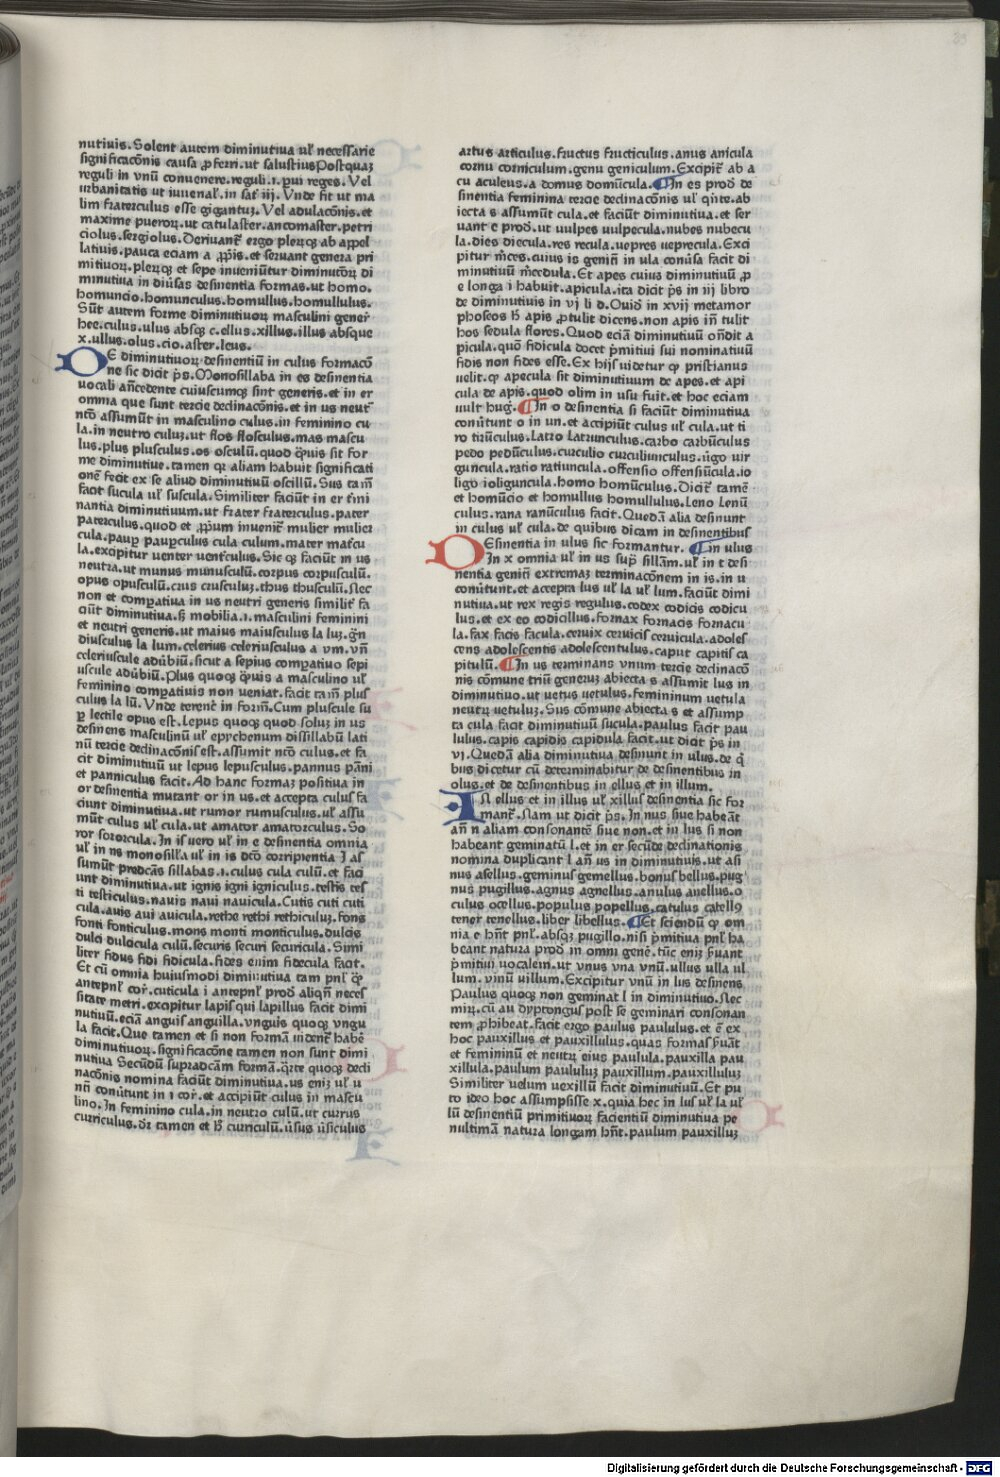 nutiuis. Solent autem diminutiua uł necessarie
significacõnis causa ꝓferri. ut salustius Postquaꝫ
reguli in vnũ conuenere. reguli .i. ꝑui reges. Vel
urbanitatis ut iuuenal̃. in sat̃ iij. Vnde fit ut ma
lim fraterculus esse gigantuꝫ. Vel adulacõnis. et
maxime pueroꝝ. ut catulaster. ancomaster. petri
ciolus. sergiolus. Deriuant̃ ergo plerũqꝫ ab appel
latiuis. pauca eciam a ꝓprijs. et seruant genera pri
mitiuoꝝ. plerũqꝫ et sepe inueniũtur diminutoꝝ di
minutiua in diũsas desinentia formas. ut homo.
homuncio. homunculus. homullus. homullulus.
Sũt autem forme diminutiuoꝝ masculini gener̃
hee. culus. ulus absqꝫ c. ellus. xillus. illus absque
x. ullus. olus. cio. aster. leus.
DE diminutiuoꝝ desinentiũ in culus formacõ
ne sic dicit p̃s. Monosillaba in es desinentia
uocali añcedente cuiuscumqꝫ sint generis. et in er
omnia que sunt tercie declinacõnis. et in us neut̃
nt̃o assumũt in masculino culus. in feminino cu
la. in neutro culuꝫ. ut flos flosculus. mas mascu
lus. plus plusculus. os osculũ. quod q̃uis sit for
me diminutiue. tamen qꝛ aliam habuit significati
onẽ fecit ex se aliud diminutiuũ oscillũ. Sus tam̃
facit sucula uł suscula. Similiter faciũt in er t̃mi
nantia diminutiuum. ut frater fraterculus. pater
paterculus. quod et ꝓpꝛium inuenit̃ mulier mulier
cula. pauꝑ pauꝑculus cula culum. mater mat̃cu
la. excipitur uenter uent̃culus. Sic qꝫ faciũt in us
neutra. ut munus munusculũ. corpus corpusculũ.
opus opusculũ. crus crusculuꝫ. thus thusculũ. Nec
non et comꝑatiua in us neutri generis similit̃ fa
ciũt diminutiua. ꝫ mobilia .i. masculini feminini
et neutri generis. ut maius maiusculus la luꝫ. grañ
diusculus la lum. celerius celeriusculus a vm. vñ
celeriuscule aduẽbiũ. sicut a sepius comꝑatiuo sepi
uscule aduẽbiũ. Plus quoqꝫ q̃uis a masculino uł
feminino comꝑatiuis non ueniat. facit tam̃ plus
culus la lũ. Vnde terent̃ in form̃. Cum pluscule su
ꝑ lectile opus est. Lepus quoqꝫ quod soluꝫ in us
desinens masculinũ uł epychenum dissillabũ lati
nũ tercie declinacõnis est. assumit nt̃o culus. et fa
cit diminutiuũ ut lepus lepusculus. pannus pãni
et panniculus facit. Ad hanc formaꝫ positiua in
or desinentia mutant or in us. et accepta culus fa
ciunt diminutiua. ut rumor rumusculus. uł assu
mũt culus uł cula. ut amator amatorculus. So
ror sororcula. In is uero uł in e desinentia omnia
uł in ns monosilla uł in is dc̃o corripientia I as
sumũt predc̃as sillabas .i. culus cula culũ. et faci
unt diminutiua. ut ignis igni igniculus. testis tes
ti testiculus. nauis naui nauicula. Cutis cuti cuti
cula. auis aui auicula. rethe rethi rethiculuꝫ. fons
fonti fonticulus. mons monti monticulus. dulcis
dulci dulcicula culũ. securis securi securicula. Simi
liter fidus fidi fidicula. fides enim fidecula facit.
Et cũ omnia huiusmodi diminutiua tam pnł qꝫ
antepnł cor̃. cuticula i antepnł prod̃ aliqñ neces
sitate metri. excipitur lapis qui lapillus facit dimi
nutiuũ. eciã anguis anguilla. vnguis quoqꝫ vngu
la facit. Que tamen et si non formã incrent̃ habẽ
diminutiuoꝝ. significacõne tamen non sunt dimi
nutiua Secũdũ supradc̃am formã. Q̃rte quoqꝫ decli
nacõnis nomina faciũt diminutiua. us eniꝫ uł u
nñ conũtunt in i cor̃. et accipiũt culus in mascu
lino. In feminino cula. in neutro culũ. ut currus
curriculus. dꝛ tamen et h̃ curriculũ. ũsus ũsiculus
artus articulus. fructus fructiculus. anus anicula
cornu corniculum. genu geniculum. Excipit̃ ab a
cu aculeus. a domus domũcula. ¶In es prod̃ de
sinentia feminina tercie declinacõnis uł q̃nte. ab
iecta s assumũt cula. et faciũt diminutiua. et ser
uant e prod̃. ut uulpes uulpecula. nubes nubecu
la. dies diecula. res recula. uepres ueprecula. Exci
pitur m̃ces. cuius is genit̃i in ula conũsa facit di
minutiuũ m̃cedula. Et apes cuius diminutiuũ ꝓ
e longa i habuit. apicula. ita dicit p̃s in iij libro
de diminutiuis in vj li d. Ouid̃ in xvij metamor
phoseos h̃ apis ꝓtulit dicens. non apis in̄ tulit
hos sedula flores. Quod eciã diminutiuũ oñdit a
picula. quõ fidicula docet p̃mitiui sui nominatiuũ
fidis non fides esse. Ex hijs uidetur qꝫ pristianus
uelit. qꝫ apecula sit diminutiuum de apes. et api
cula de apis. quod olim in usu fuit. et hoc eciam
uult hug̃. ¶In o desinentia si faciũt diminutiua
conũtunt o in un. et accipiũt culus uł cula. ut ti
ro tirũculus. Latro Latrunculus. carbo carbũculus
pedo pedũculus. curculio curculiunculus. ũgo uir
guncula. ratio ratiuncula. offensio offensiũcula. io
ligo ioliguncula. homo homũculus. Dicit̃ tamẽ
et homũcio et homullus homullulus. Leno Lenũ
culus. rana ranũculus facit. Quedã alia desinunt
in culus uł cula. de quibus dicam in desinentibus
DEsinentia in ulus sic formantur. ¶In ulus
In x omnia uł in us sup̃ sillãm. uł in t desi
nentia genit̃i extremaꝫ terminacõnem in is. in u
conũtunt. et accepta lus uł la uł lum. faciũt dimi
nutiua. ut rex regis regulus. codex codicis codicu
lus. et ex eo codicillus. fornax fornacis fornacu
la. fax facis facula. ceruix ceruicis ceruicula. adoles
cens adolescentis adolescentulus. caput capitis ca
pitulũ. ¶In us terminans vnum tercie declinacõ
nis cõmune triũ generuꝫ abiecta s assumit lus in
diminutiuo. ut uetus uetulus. femininum uetula
neutꝝ uetuluꝫ. Sus cõmune abiecta s et assump
ta cula facit diminutiuũ sucula. paulus facit pau
lulus. capis capidis capidula facit. ut dicit p̃s in
vj. Quedã alia diminutiua desinunt in ulus. de q̃
bus dicetur cũ determinabitur de desinentibus in
olus. et de desinentibus in ellus et in illum.
IN ellus et in illus uł xillus desinentia sic for
mant̃. Nam ut dicit p̃s. In nus siue habeãt
añ n aliam consonantẽ siue non. et in lus si non
habeant geminatũ l. et in er secũde declinationis
nomina duplicant l añ us in diminutiuis. ut asi
nus asellus. geminus gemellus. bonus bellus. pug
nus pugillus. agnus agnellus. anulus anellus. o
culus ocellus. populus popellus. catulus catellꝰ
tener tenellus. liber libellus. ¶Et sciendũ qꝫ om
nia e hñt pnł. absqꝫ pugillo. nisi p̃mitiua pnł ha
beant natura prod̃ in omni genẽ. tũc eniꝫ ẽuant
p̃mitiui uocalem. ut vnus vna vnũ. ullus ulla ul
lum. vinũ uillum. Excipitur vnũ in lus desinens
Paulus quoqꝫ non geminat l in diminutiuo. Nec
miꝝ. cũ au dyptongus post se geminari consonan
tem ꝓhibeat. facit ergo paulus paululus. et ẽ ex
hoc pauxillus et pauxillulus. quas formas ẽuãt
et femininũ et neutꝝ eius paulula. pauxilla pau
xillula. paulum paululuꝫ pauxillum. pauxilluluꝫ
Similiter uelum uexillũ facit diminutiuũ. Et pu
to ideo hoc assumpsisse x. quia hec in lus uł la uł
lũ desinentiũ primitiuoꝝ facientiũ diminutiua pe
nultimã natura longam hñt. paulum pauxilluꝫ
Digitalisierung gefördert durch die Deutsche Forschungsgemeinschaft - DFG